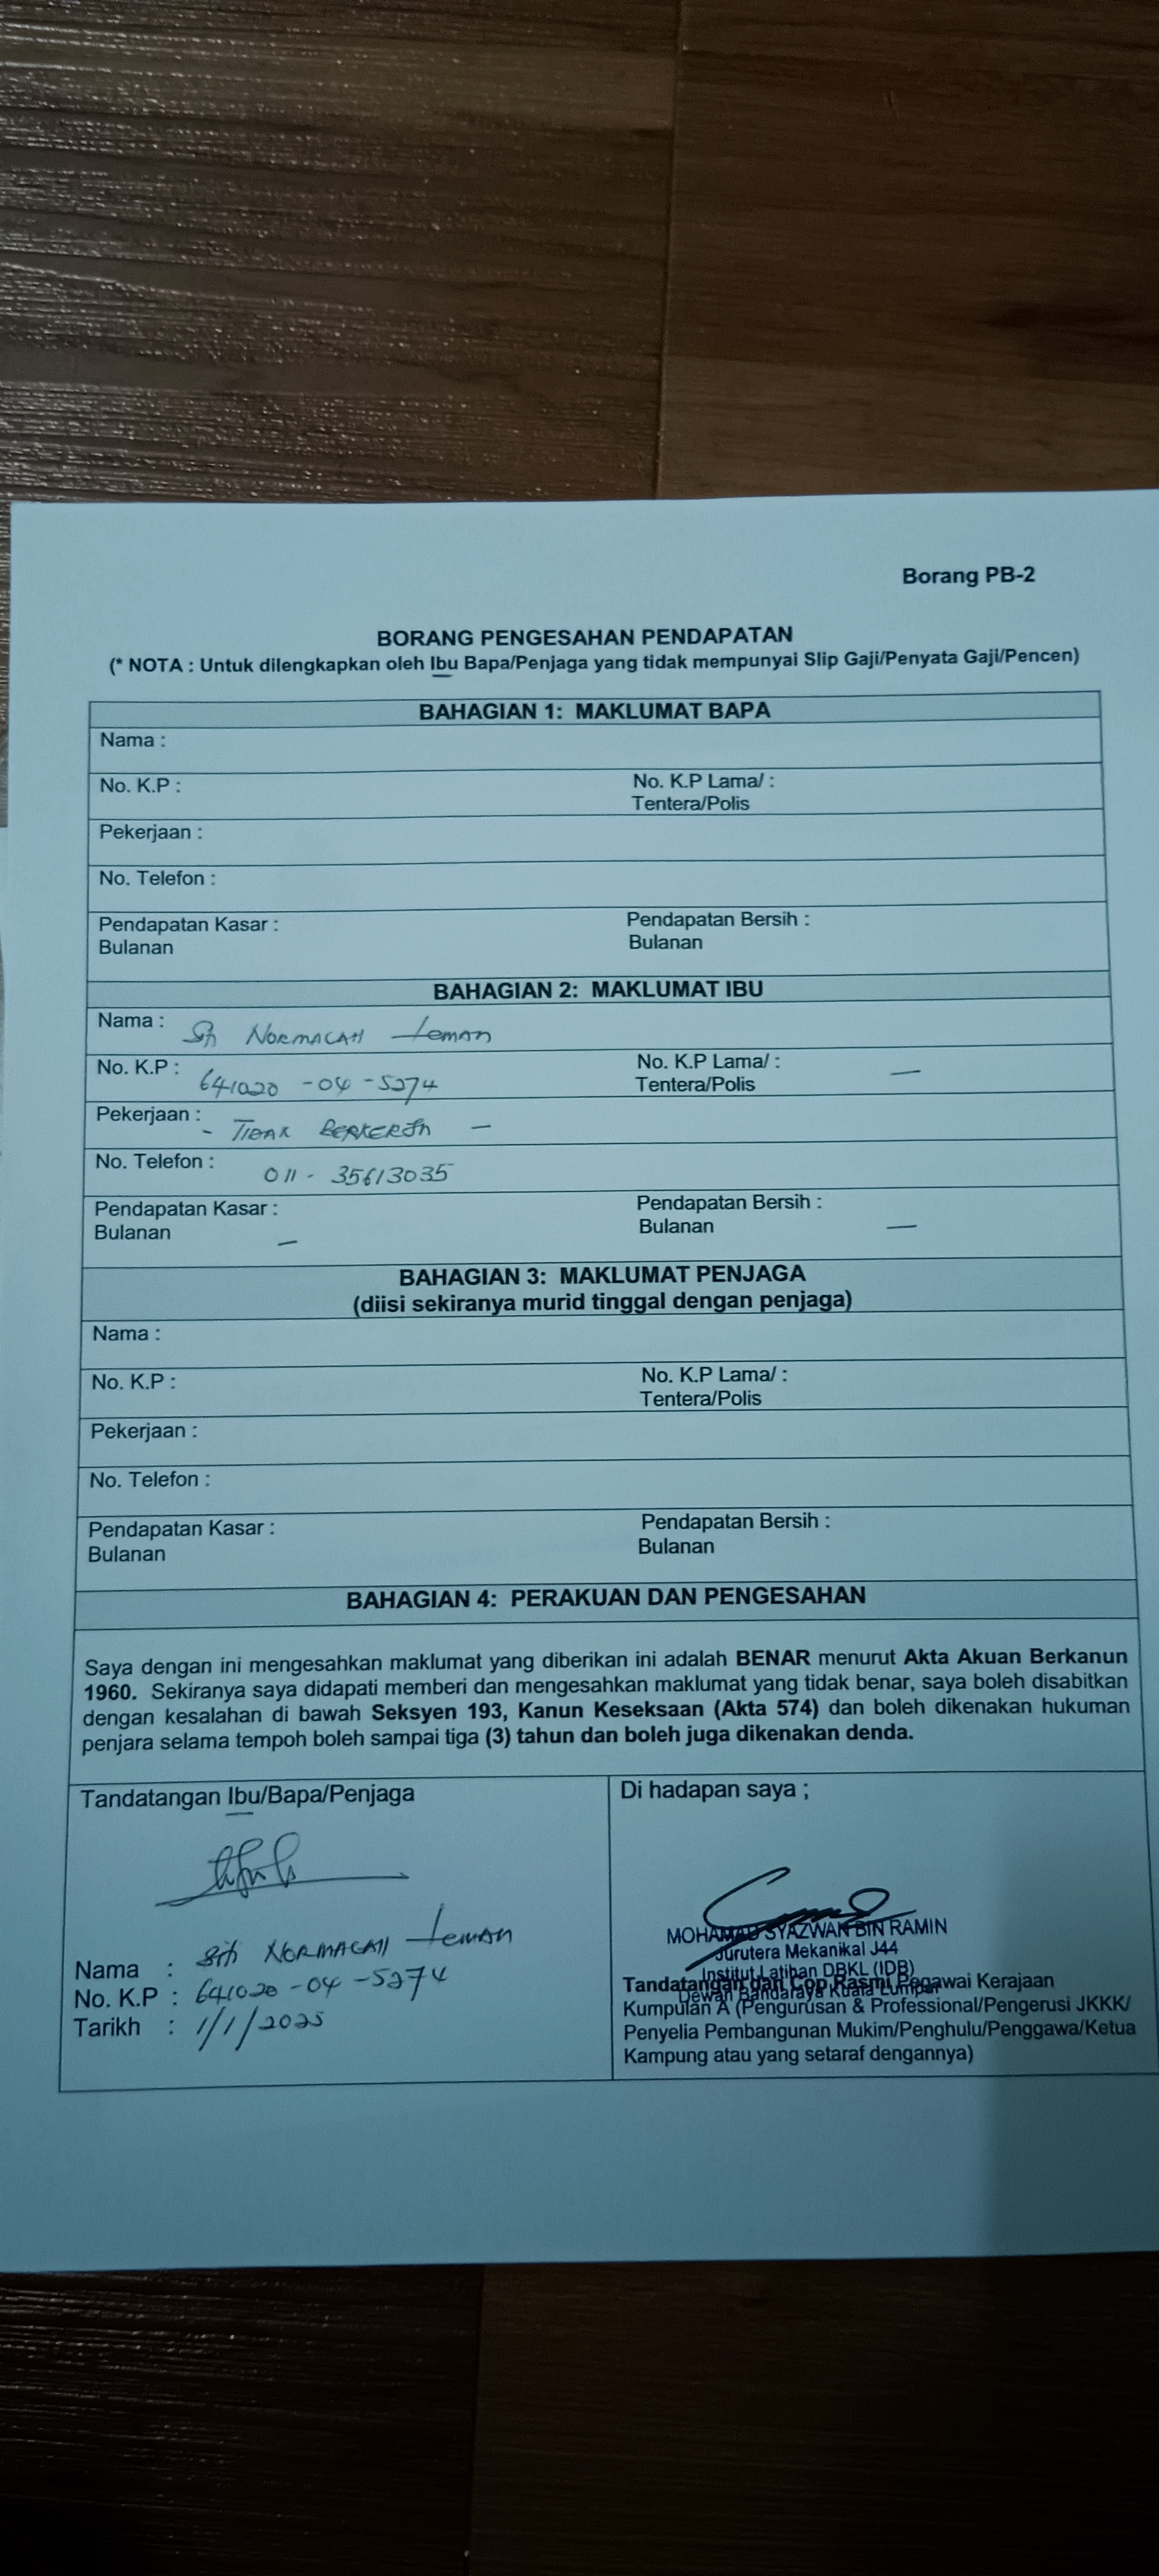 Borang PB-2
BORANG PENGESAHAN PENDAPATAN
(* NOTA : Untuk dilengkapkan oleh Ibu Bapa/Penjaga yang tidak mempunyai Slip Gaji/Penyata Gaji/Pencen)
BAHAGIAN 1: MAKLUMAT BAPA
Nama :
No. K.P : No. K.P Lama/ :
Tentera/Polis
Pekerjaan :
No. Telefon :
Pendapatan Kasar : Pendapatan Bersih :
Bulanan Bulanan
BAHAGIAN 2: MAKLUMAT IBU
Nama : NORMALAH Leman
No. K.P : 641020 - 04 - 5274 No. K.P Lama/ : —
Tentera/Polis
Pekerjaan : - TIDAK BERKERJA -
No. Telefon : 011 - 35613035
Pendapatan Kasar : Pendapatan Bersih :
Bulanan — Bulanan —
BAHAGIAN 3: MAKLUMAT PENJAGA
(diisi sekiranya murid tinggal dengan penjaga)
Nama :
No. K.P : No. K.P Lama/ :
Tentera/Polis
Pekerjaan :
No. Telefon :
Pendapatan Kasar : Pendapatan Bersih :
Bulanan Bulanan
BAHAGIAN 4: PERAKUAN DAN PENGESAHAN
Saya dengan ini mengesahkan maklumat yang diberikan ini adalah BENAR menurut Akta Akuan Berkanun
1960. Sekiranya saya didapati memberi dan mengesahkan maklumat yang tidak benar, saya boleh disabitkan
dengan kesalahan di bawah Seksyen 193, Kanun Keseksaan (Akta 574) dan boleh dikenakan hukuman
penjara selama tempoh boleh sampai tiga (3) tahun dan boleh juga dikenakan denda.
Tandatangan Ibu/Bapa/Penjaga
Nama : Siti NORMALAH Leman
No. K.P : 641020 - 04 - 5274
Tarikh : 1/1/2025
Di hadapan saya ;
MOHAMAD SYAZWAN BIN RAMIN
Jurutera Mekanikal J44
Institut Latihan DBKL (IDB)
Dewan Bandaraya Kuala Lumpur
Tandatangan dan Cop Rasmi Pegawai Kerajaan
Kumpulan A (Pengurusan & Professional/Pengerusi JKKK/
Penyelia Pembangunan Mukim/Penghulu/Penggawa/Ketua
Kampung atau yang setaraf dengannya)